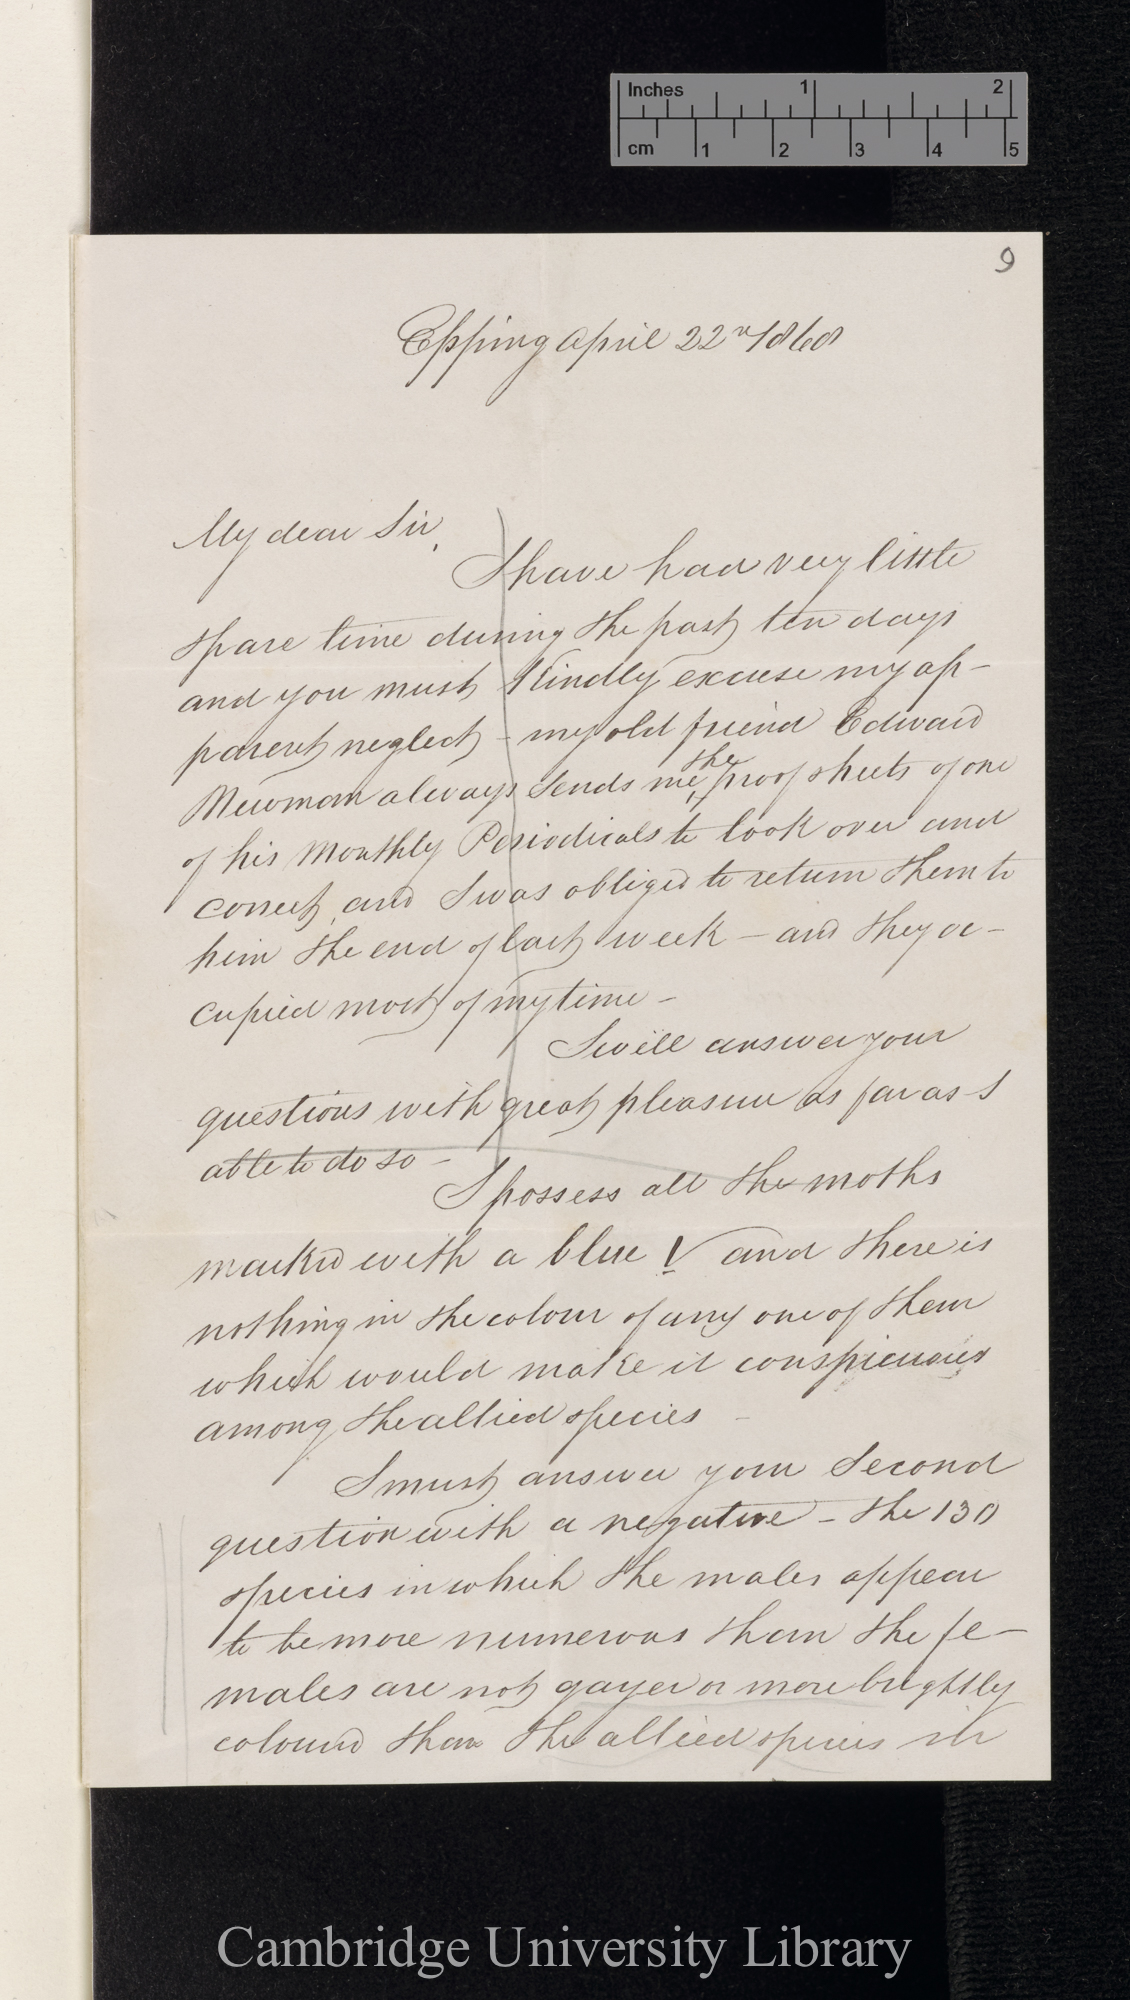 Inches 1 2
cm 1 2 3 4 5
9
Epping April 22nd 1868
My dear Sir,
I have had very little
spare time during the past ten days
and you must kindly excuse my ap-
parent neglect - my old friend Edward
Newman always sends me the proof sheets of one
of his Monthly Periodicals to look over and
correct, and I was obliged to return them to
him the end of last week - and they oc-
cupied most of my time -
I will answer your
questions with great pleasure as far as I
able to do so -
I possess all the moths
marked with a blue V and there is
nothing in the colour of any one of them
which would make it conspicuous
among the allied species -
I must answer your Second
question with a negative - the 130
species in which the males appear
to be more numerous than the fe-
males are not gayer or more brightly
coloured than the allied species in
Cambridge University Library